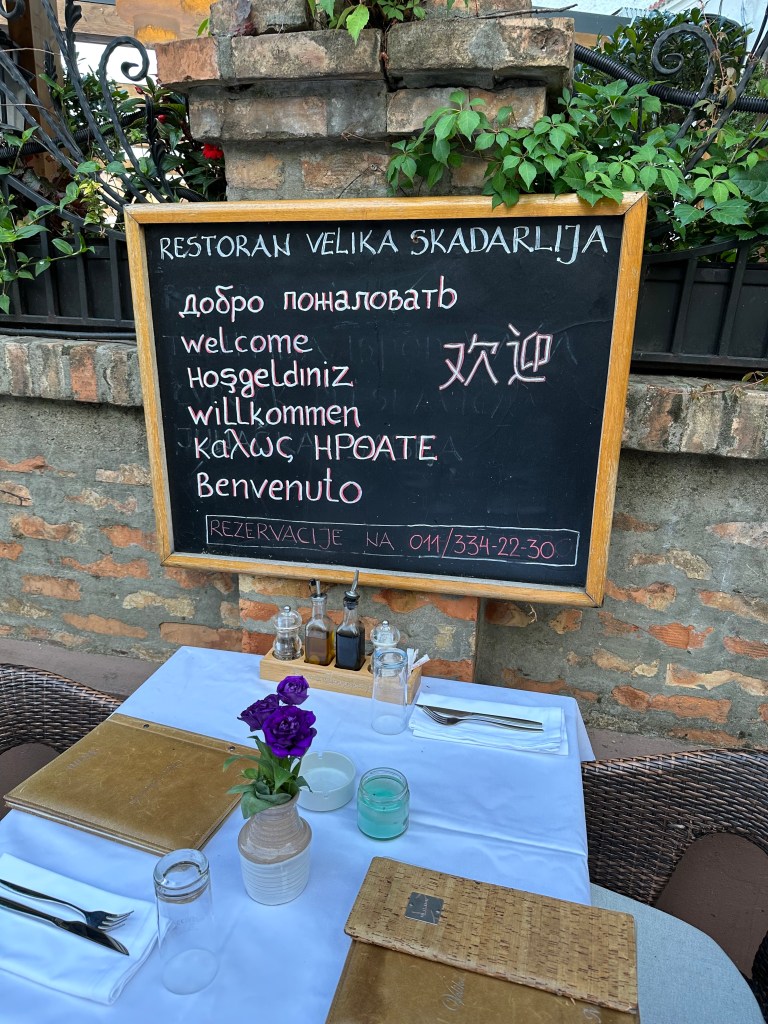 RESTORAN VELIKA SKADARLIJA
добро пожаловатЬ
welcome
欢迎
Hoşgeldiniz
willkommen
καλως ΗΡΘΑΤΕ
Benvenuto
REZERVACIJE NA 011/334-22-30